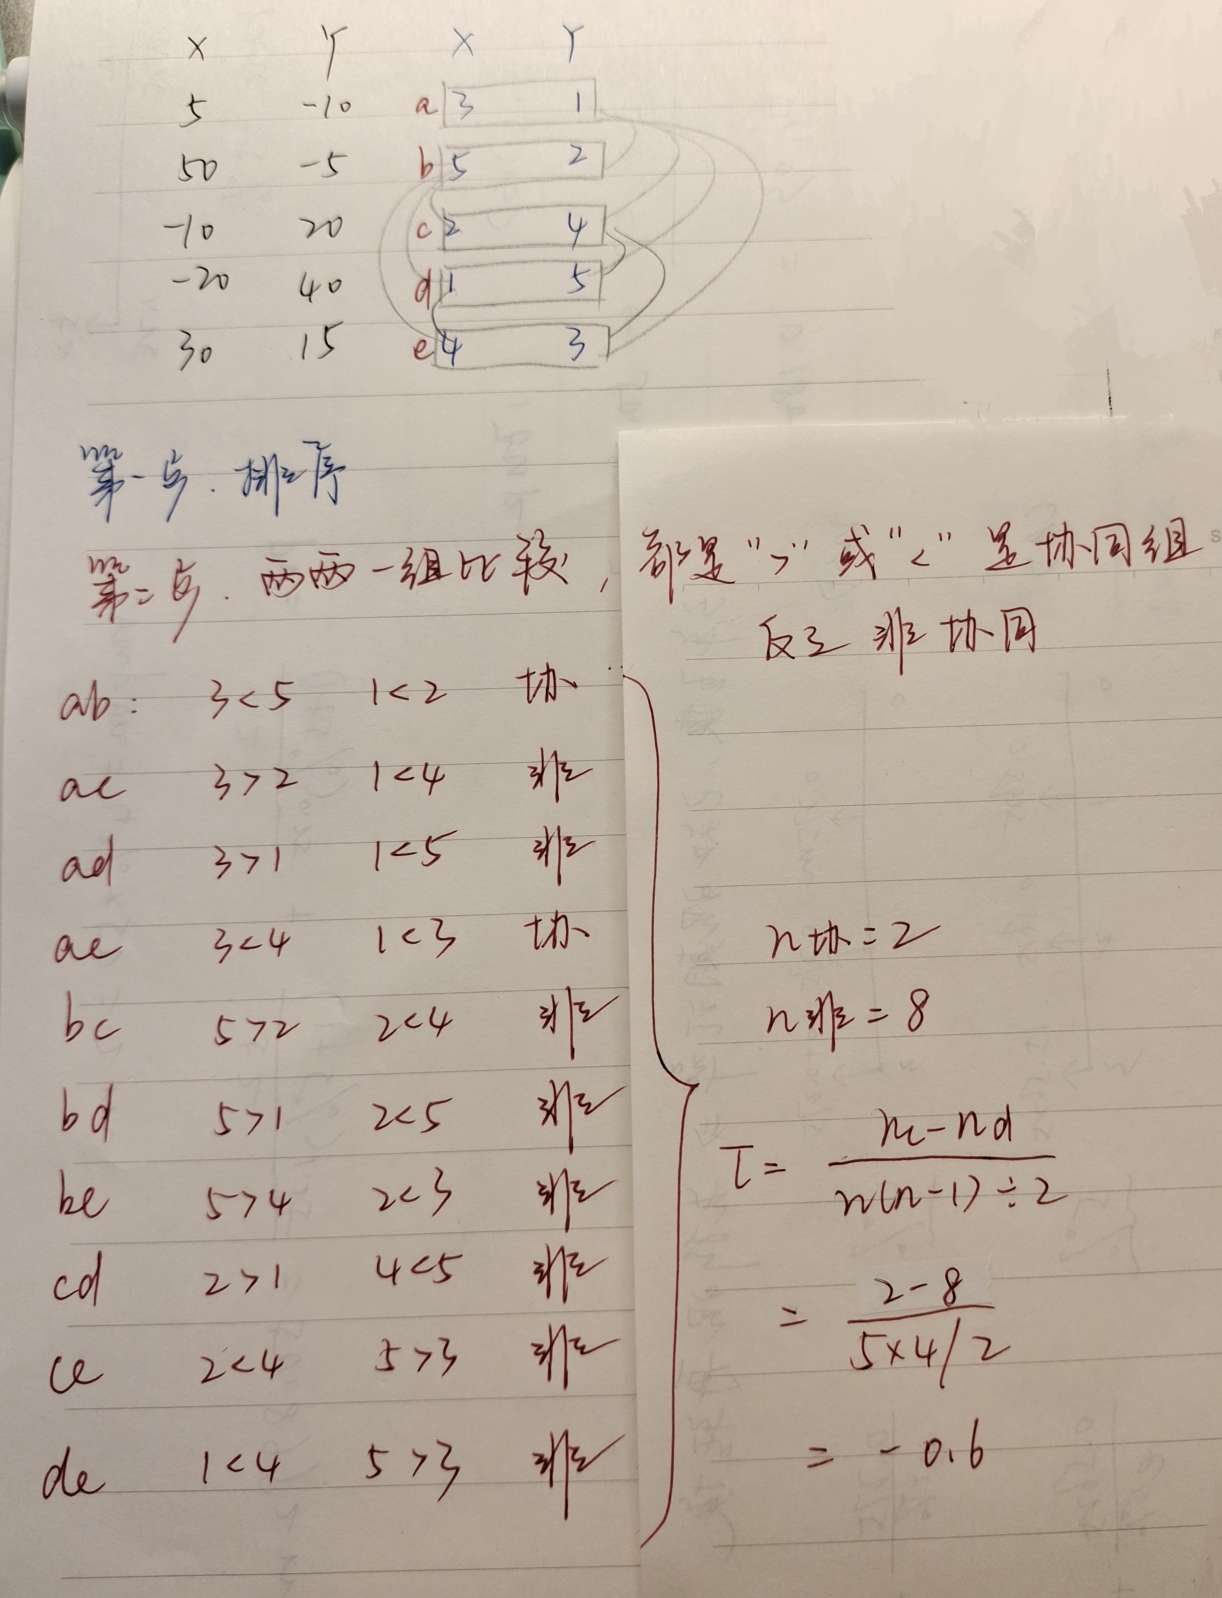 X Y X Y
5 -10 a 3 1
50 -5 b 5 2
-10 20 c 2 4
-20 40 d 1 5
30 15 e 4 3
第一步. 排序
第二步. 两两一组比较, 都是">"或"<"是协同组
反之非协同
ab: 3<5 1<2 协
ac 3>2 1<4 非
ad 3>1 1<5 非
ae 3<4 1<3 协
bc 5>2 2<4 非
bd 5>1 2<5 非
be 5>4 2<3 非
cd 2>1 4<5 非
ce 2<4 5>3 非
de 1<4 5>3 非
n协=2
n非=8
τ= nc-nd
n(n-1)÷2
= 2-8
5×4/2
= -0.6